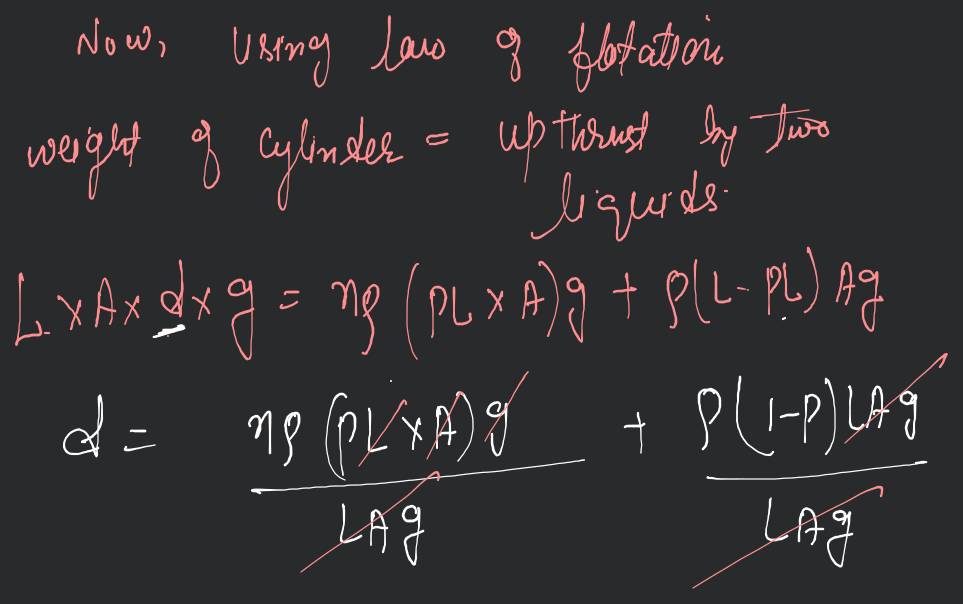 Now, Using law of flotation
weight of cylinder = upthrust by Two
liquids.
L × A × d × g = nρ (PL × A) g + ρ(L - PL) Ag
d = nρ (PL × A) g / LAg + ρ(1-P) LAg / LAg